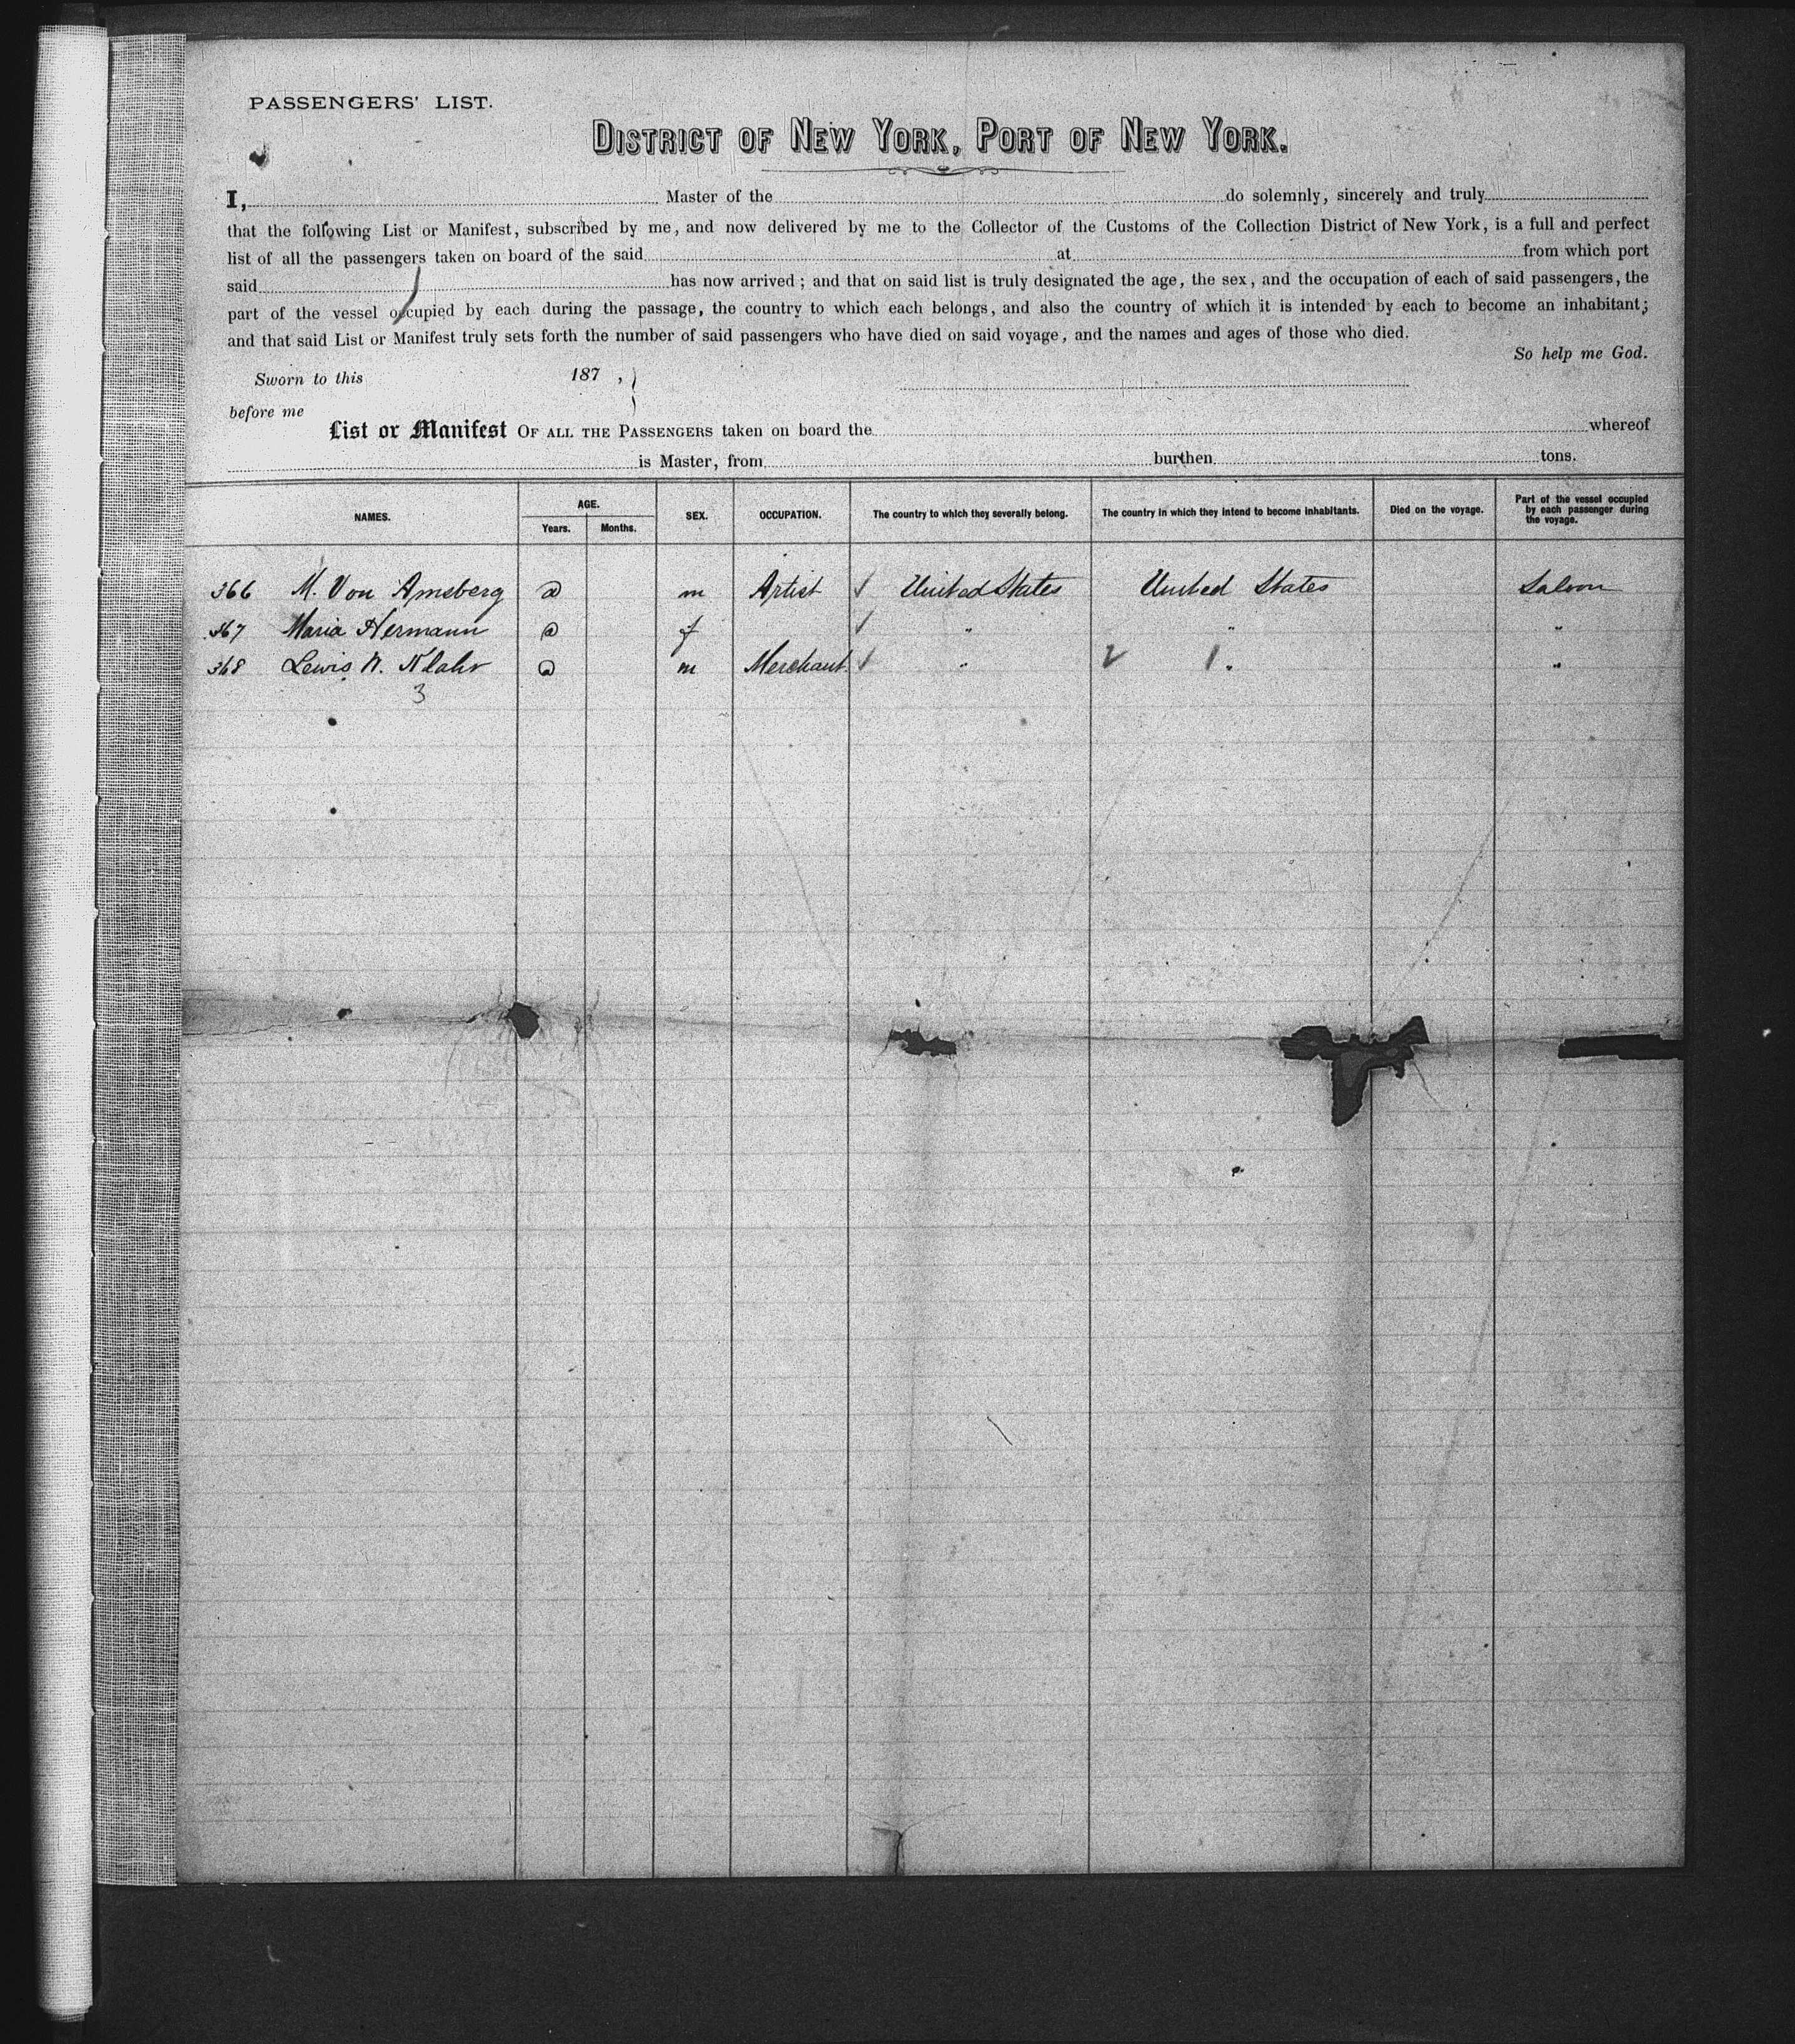 PASSENGERS' LIST.
DISTRICT OF NEW YORK, PORT OF NEW YORK.
I, Master of the do solemnly, sincerely and truly
that the following List or Manifest, subscribed by me, and now delivered by me to the Collector of the Customs of the Collection District of New York, is a full and perfect
list of all the passengers taken on board of the said at from which port
said has now arrived; and that on said list is truly designated the age, the sex, and the occupation of each of said passengers, the
part of the vessel occupied by each during the passage, the country to which each belongs, and also the country of which it is intended by each to become an inhabitant;
and that said List or Manifest truly sets forth the number of said passengers who have died on said voyage, and the names and ages of those who died.
So help me God.
Sworn to this 187 ,
before me
List or Manifest OF ALL THE PASSENGERS taken on board the whereof
is Master, from burthen tons.
NAMES. AGE. Years. Months. SEX. OCCUPATION. The country to which they severally belong. The country in which they intend to become inhabitants. Died on the voyage. Part of the vessel occupied by each passenger during the voyage.
366 M. Von Amsberg a m Artist ✓ United States United States Saloon
367 Maria Hermann a f ✓ " " "
368 Lewis N. Klahr a m Merchant ✓ " 2 1 " "
3